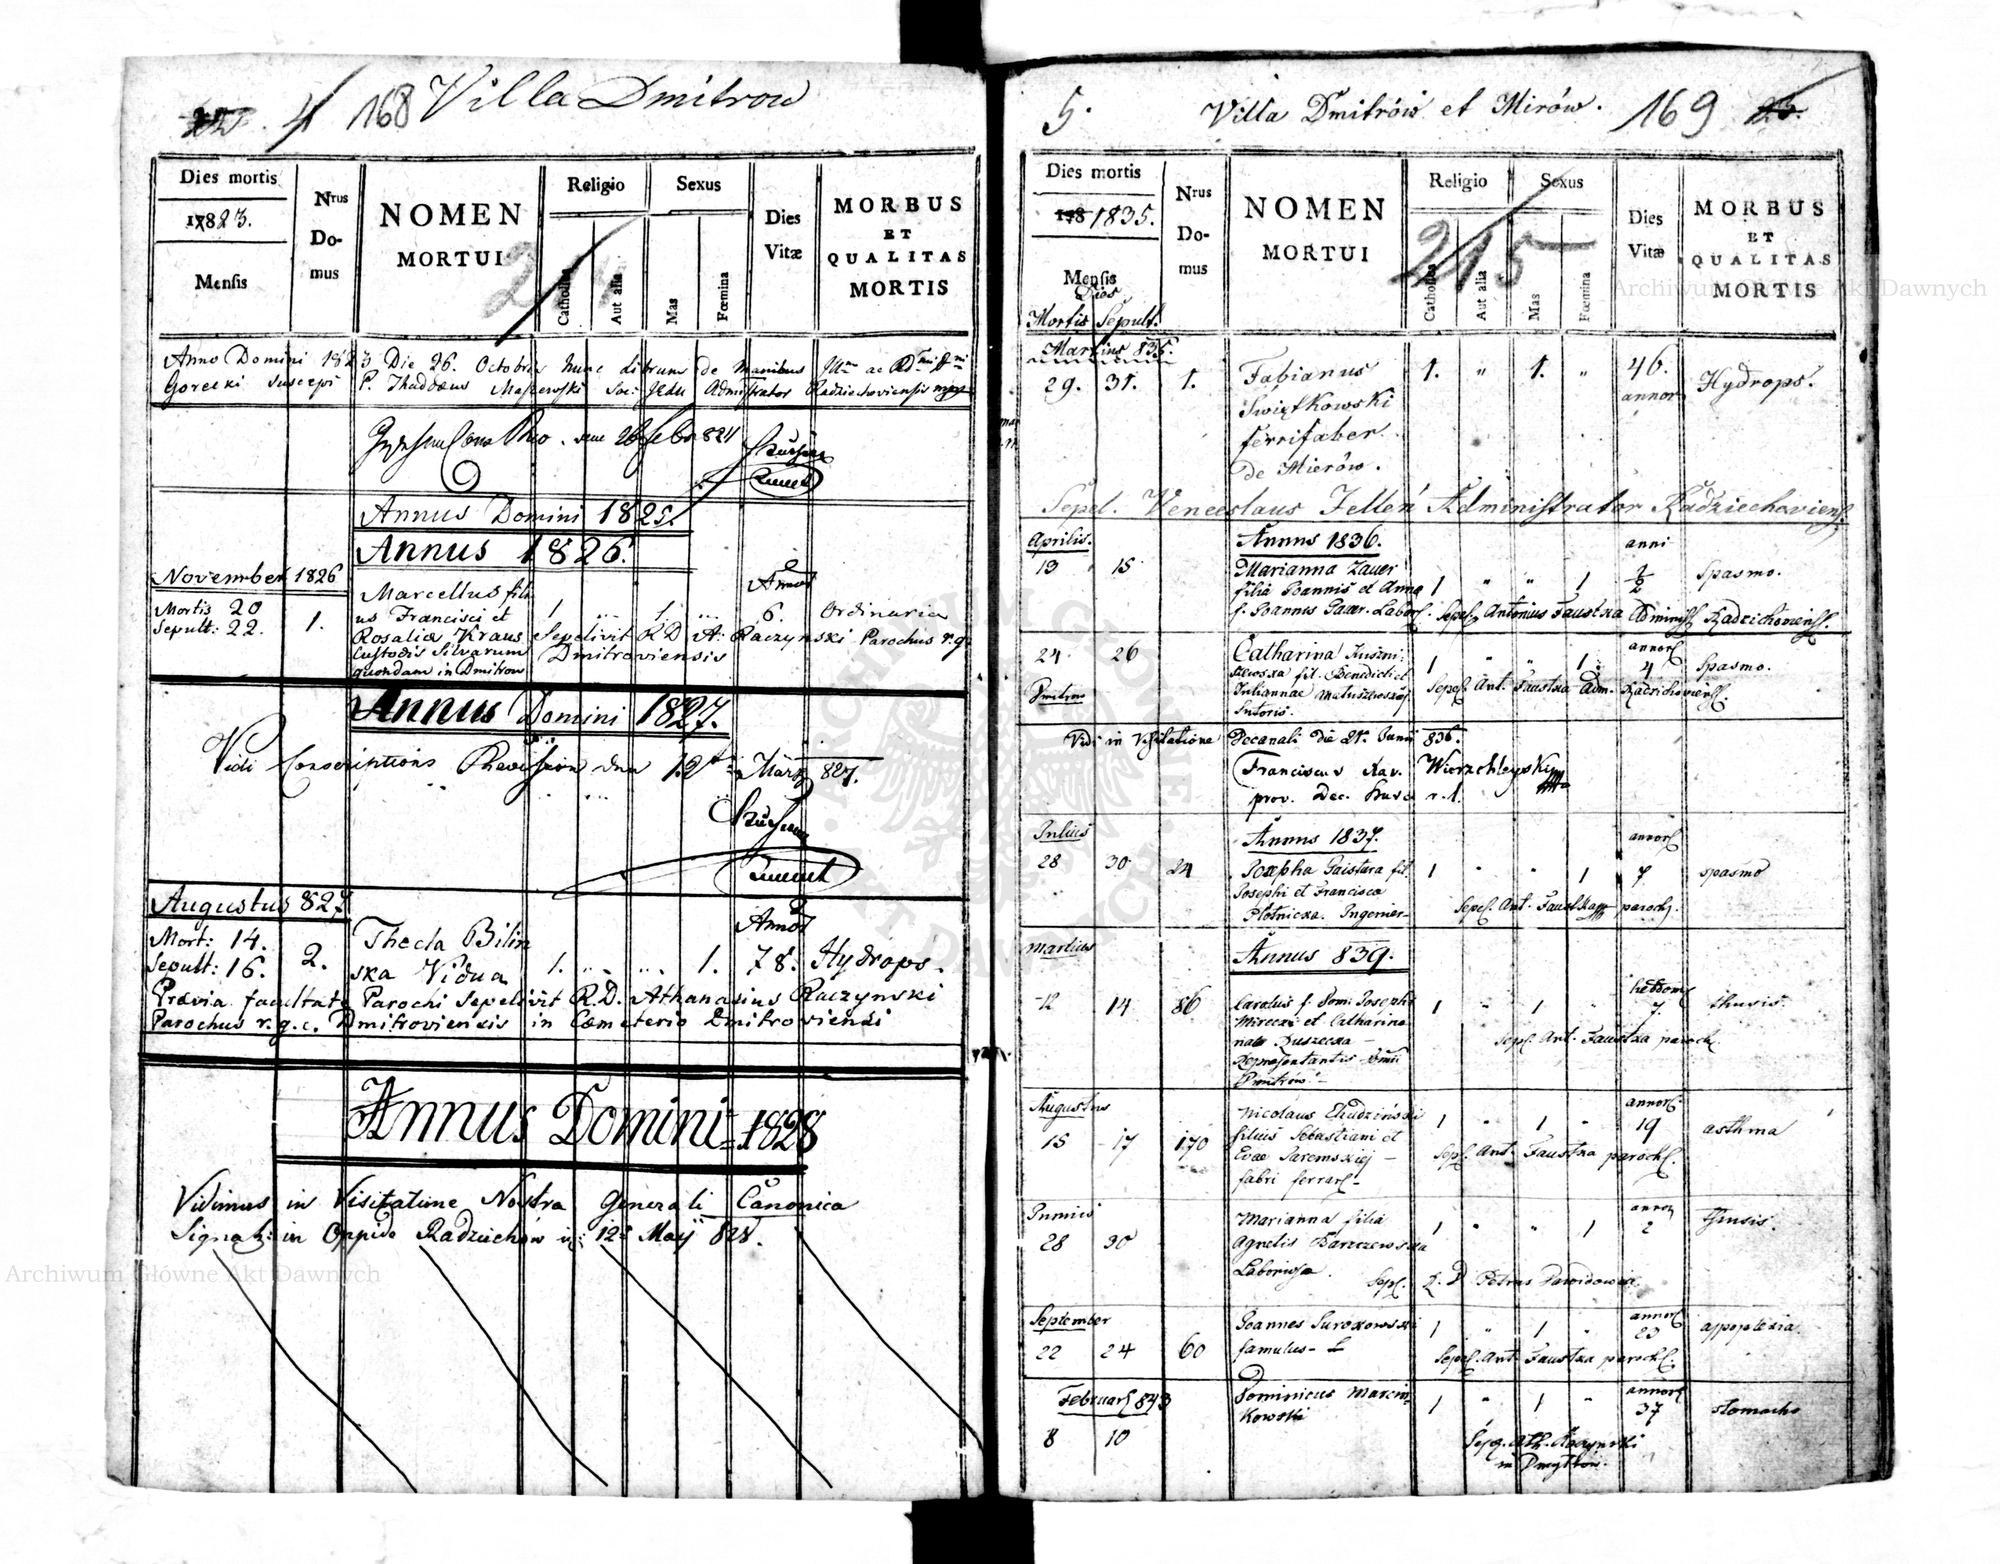 4 168 Villa Dmitrow
Dies mortis
1823.
Mensis
Nrus
Do-
mus
NOMEN
MORTUI
Religio
Catholica
Aut alia
Sexus
Mas
Fœmina
Dies
Vitæ
MORBUS
ET
QUALITAS
MORTIS
214
Anno Domini 1823 Die 26. Octobris hunc librum de Manibus
Gorecki suscepi P. Thaddæus Maszewski Soc: Jesu Administrator Radziechoviensis mpp
Annus Domini 1825.
Annus 1826.
November 1826
Mortis 20
Sepult: 22.
1.
Marcellus fili
us Francisci et
Rosaliæ Kraus
Custodis Silvarum
quondam in Dmitrow
1 " 1. "
Annor
6.
Ordinaria
Sepelivit R.D. A: Raczynski Parochus r.g.
Dmitroviensis
Annus Domini 1827.
Vidi Conscriptions Revision den 12t März 827.
Augustus 827
Mort: 14.
Sepult: 16.
2.
Thecla Bilin
ska Vidua
1. " " 1.
Annor
78.
Hydrops.
Prævia facultate Parochi Sepelivit R.D. Athanasius Raczynski
Parochus r.g.c. Dmitroviensis in Cæmeterio Dmitroviensi
Annus Domini 1828
Vidimus in Visitatione Nostra Generali Canonica
Signat: in Oppido Radziechów 12 Maÿ 828.
5. Villa Dmitrów et Mirów. 169
Dies mortis
1835.
Mensis
Dies
Mortis Sepult.
Nrus
Do-
mus
NOMEN
MORTUI
Religio
Catholica
Aut alia
Sexus
Mas
Fœmina
Dies
Vitæ
MORBUS
ET
QUALITAS
MORTIS
215
Martius 835.
29. 31. 1.
Fabianus
Swiętkowski
ferrifaber
de Mierów.
1. " 1. "
46.
annor
Hydrops.
Sepel. Venceslaus Jellen Administrator Radziechoviens.
Aprilis.
Annus 1836.
13 15
Marianna Zauer
filia Joannis et Anna
f. Joannes Pauer. Labor.
1 " " 1
anni
1/2
Spasmo.
Sepel. Antonius Faustka Administ. Radzichoviens.
24. 26
Dmitrow
Catharina
fil. Benedicti et
Juliannae Matuszewskiej
Sutoris.
1 " " 1.
annor
4
Spasmo.
Sepel. Ant. Faustka Adm. Radzichoviens.
Vidi in Visitatione Decanali die 21. Junii 836.
Franciscus Xav. Wierzchleyski
prov. Dec. Busc r.l.
Julius
Annus 1837.
28 30 24
Josepha Gaistara fil.
Josephi et Francisca
Plotnicka. Ingenier-
1 " " 1
annor
7
spasmo
Sepel. Ant. Faustka paroch.
Martius
Annus 839.
12 14 86
Carolus f. Dom. Josephi
Mirecki et Catharina
nata Duszecka -
Representantis Dmii
Dmitrów -
1 " 1 "
hebdom
7.
thusis.
Sepel. Ant. Faustka paroch.
Augustus
15 17 170
Nicolaus Chudziński
filius Sebastiani et
Evae Jaremskiej -
fabri ferrar.
1 " 1 "
annor
19
asthma
Sepel. Ant. Faustka paroch.
Junius
28 30
Marianna filia
Agnetis Barczewska
Laboriosa.
1 " " 1
annor
2
thusis.
Sepel. R. D. Petrus Dawidowicz
September
22 24 60
Joannes Surokowski
famulus
1 " 1 "
annor
23
appoplexia.
Sepel. Ant. Faustka paroch.
Februar 843
8 10
Dominicus Marcin-
kowski
1 " 1 "
annor
37
stomacho
Sep. Ath. Raczynski
in Dmytrów.
Archiwum Główne Akt Dawnych
Archiwum Główne Akt Dawnych
ARCHIWUM GŁÓWNE AKT DAWNYCH